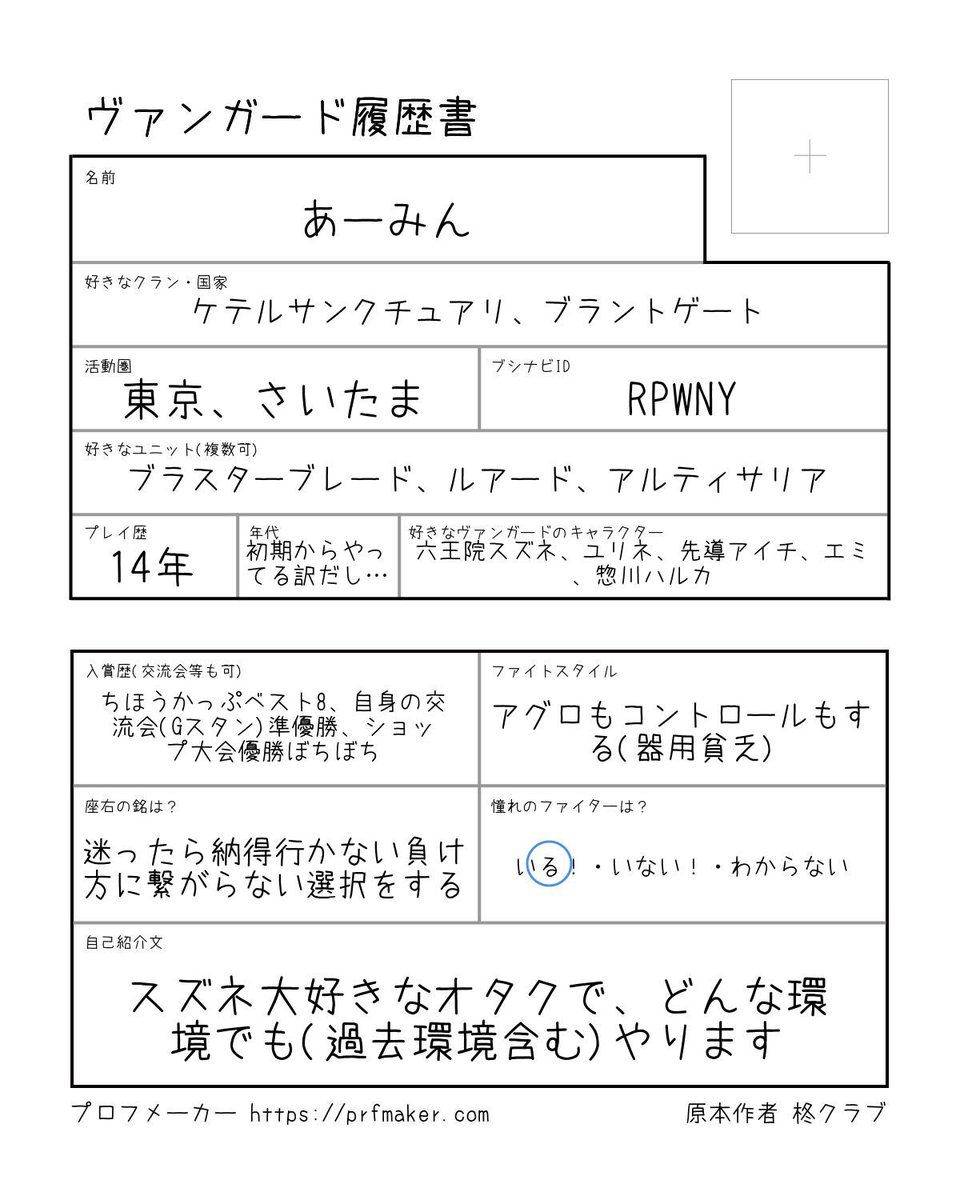 ヴァンガード履歴書
名前
あーみん
好きなクラン・国家
ケテルサンクチュアリ、ブラントゲート
活動圏
東京、さいたま
ブシナビID
RPWNY
好きなユニット(複数可)
ブラスターブレード、ルアード、アルティサリア
プレイ歴
14年
年代
初期からやっ
てる訳だし…
好きなヴァンガードのキャラクター
六王院スズネ、ユリネ、先導アイチ、エミ
、惣川ハルカ
入賞歴(交流会等も可)
ちほうかっぷベスト8、自身の交
流会(Gスタン)準優勝、ショッ
プ大会優勝ぼちぼち
ファイトスタイル
アグロもコントロールもす
る(器用貧乏)
座右の銘は？
迷ったら納得行かない負け
方に繋がらない選択をする
憧れのファイターは？
いる！・いない！・わからない
自己紹介文
スズネ大好きなオタクで、どんな環
境でも(過去環境含む)やります
プロフメーカー https://prfmaker.com
原本作者 柊クラブ